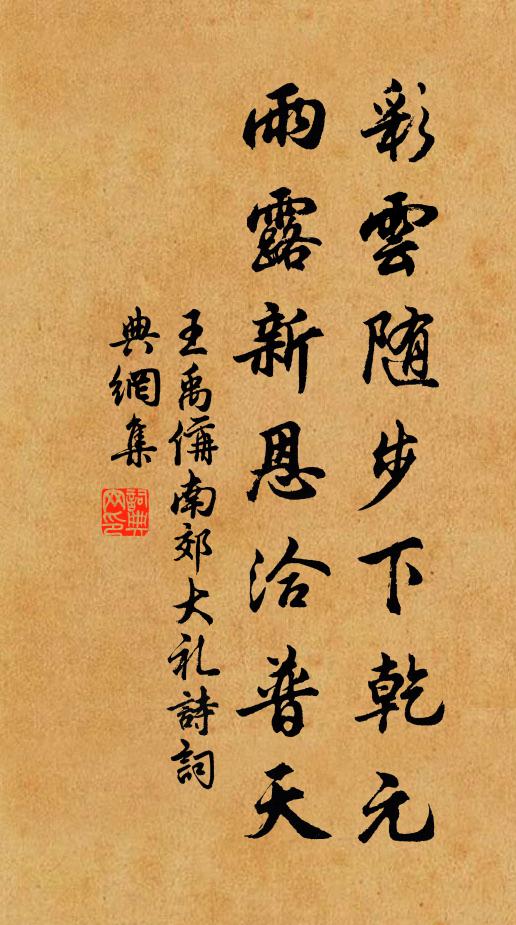 彩雲随步下乾元
雨露新恩洽普天
王禹偁南郊大礼詩詞
典網集
詞典网印